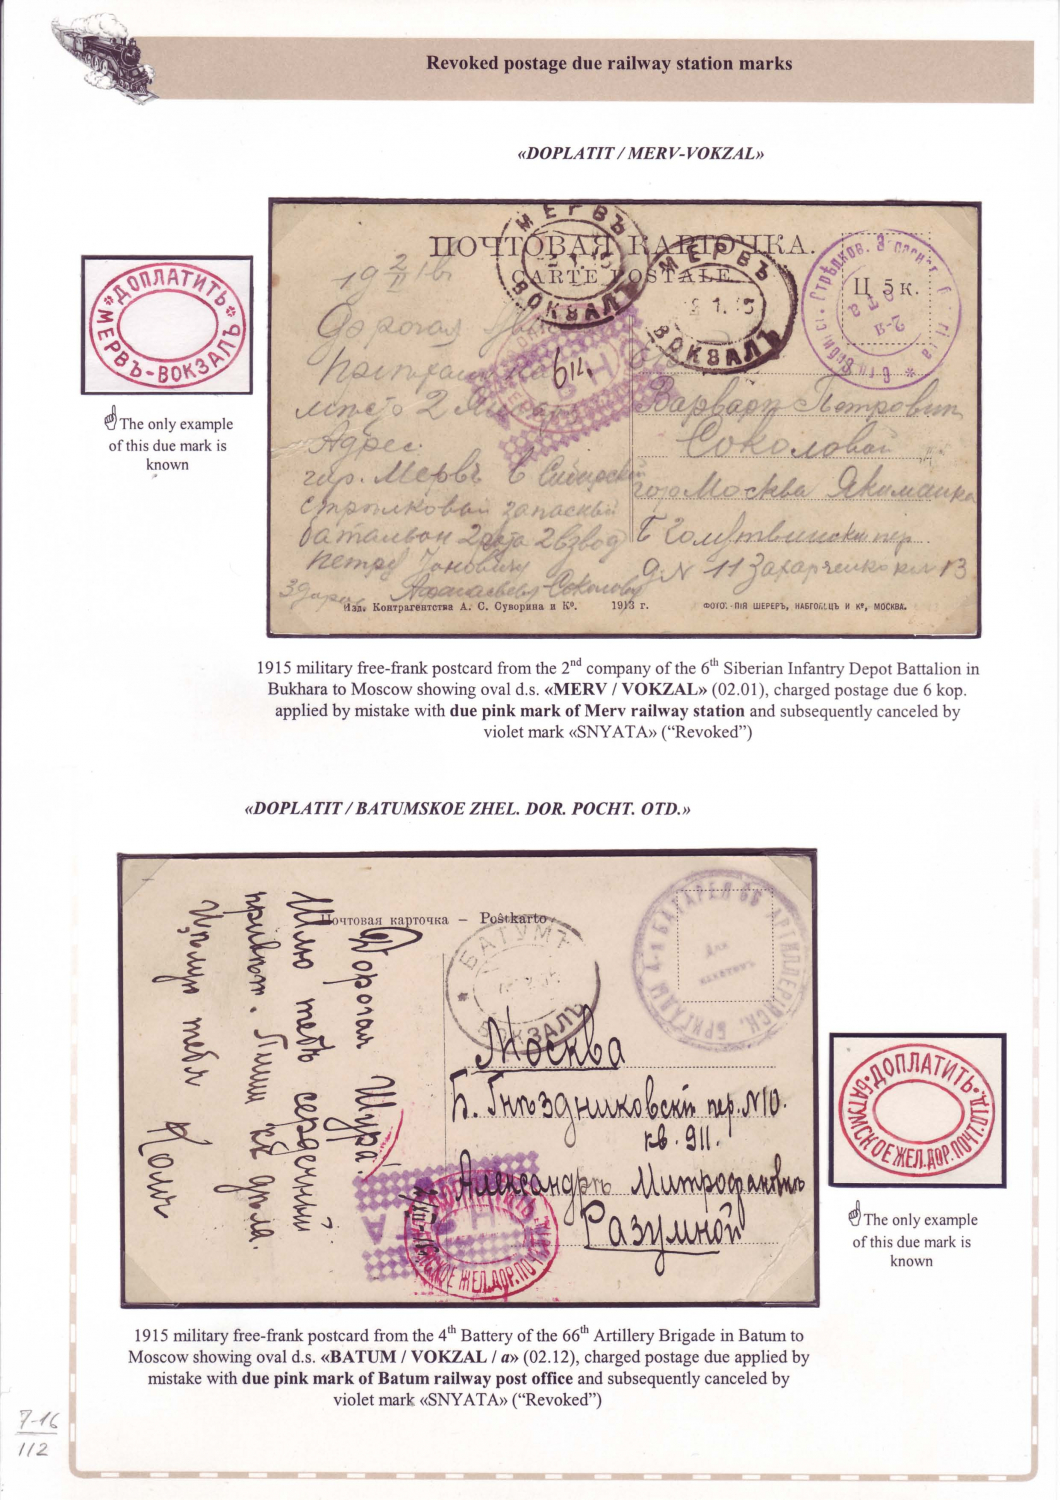 Revoked postage due railway station marks
«DOPLATIT / MERV-VOKZAL»
ДОПЛАТИТЬ
МЕРВЪ-ВОКЗАЛЪ
The only example
of this due mark is
known
МЕРВЪ
ВОКЗАЛЪ
МЕРВЪ
ВОКЗАЛЪ
ПОЧТОВАЯ КАРТОЧКА.
CARTE POSTALE
Ц 5 к.
6 к.
Дорогая
Адрес.
гор. Мервъ 6 Сибирский
стрелковый запасный
баталион 2 рота 2 взвод
Петру
Афанасьеву-Соколову
Варваре Петровне
Соколовой
гор Москва Якиманка
д N 11 Захарченко кв 13
Изд. Контрагентства А. С. Суворина и К°. 1913 г.
ФОТО.-ПІЯ ШЕРЕРЪ, НАБГОЛЬЦЪ И К°, МОСКВА.
1915 military free-frank postcard from the 2nd company of the 6th Siberian Infantry Depot Battalion in
Bukhara to Moscow showing oval d.s. «MERV / VOKZAL» (02.01), charged postage due 6 kop.
applied by mistake with due pink mark of Merv railway station and subsequently canceled by
violet mark «SNYATA» (“Revoked”)
«DOPLATIT / BATUMSKOE ZHEL. DOR. POCHT. OTD.»
Почтовая карточка – Poŝtkarto
БАТУМЪ
ВОКЗАЛЪ
4-я БАТАРЕЯ 66 АРТИЛЛЕРІЙСК. БРИГАДЫ
Для
пакетовъ
Дорогая Шура.
Шлю тебѣ сердечный
привѣт. Пиши
Цѣлую тебя
Коля
Москва
Б. Гнѣздниковскій пер. N 10.
кв. 911.
Александрѣ Митрофановнѣ
Разумной
ДОПЛАТИТЬ
БАТУМСКОЕ ЖЕЛ.ДОР.ПОЧТ.ОТД.
The only example
of this due mark is
known
1915 military free-frank postcard from the 4th Battery of the 66th Artillery Brigade in Batum to
Moscow showing oval d.s. «BATUM / VOKZAL / a» (02.12), charged postage due applied by
mistake with due pink mark of Batum railway post office and subsequently canceled by
violet mark «SNYATA» (“Revoked”)
7-16
112